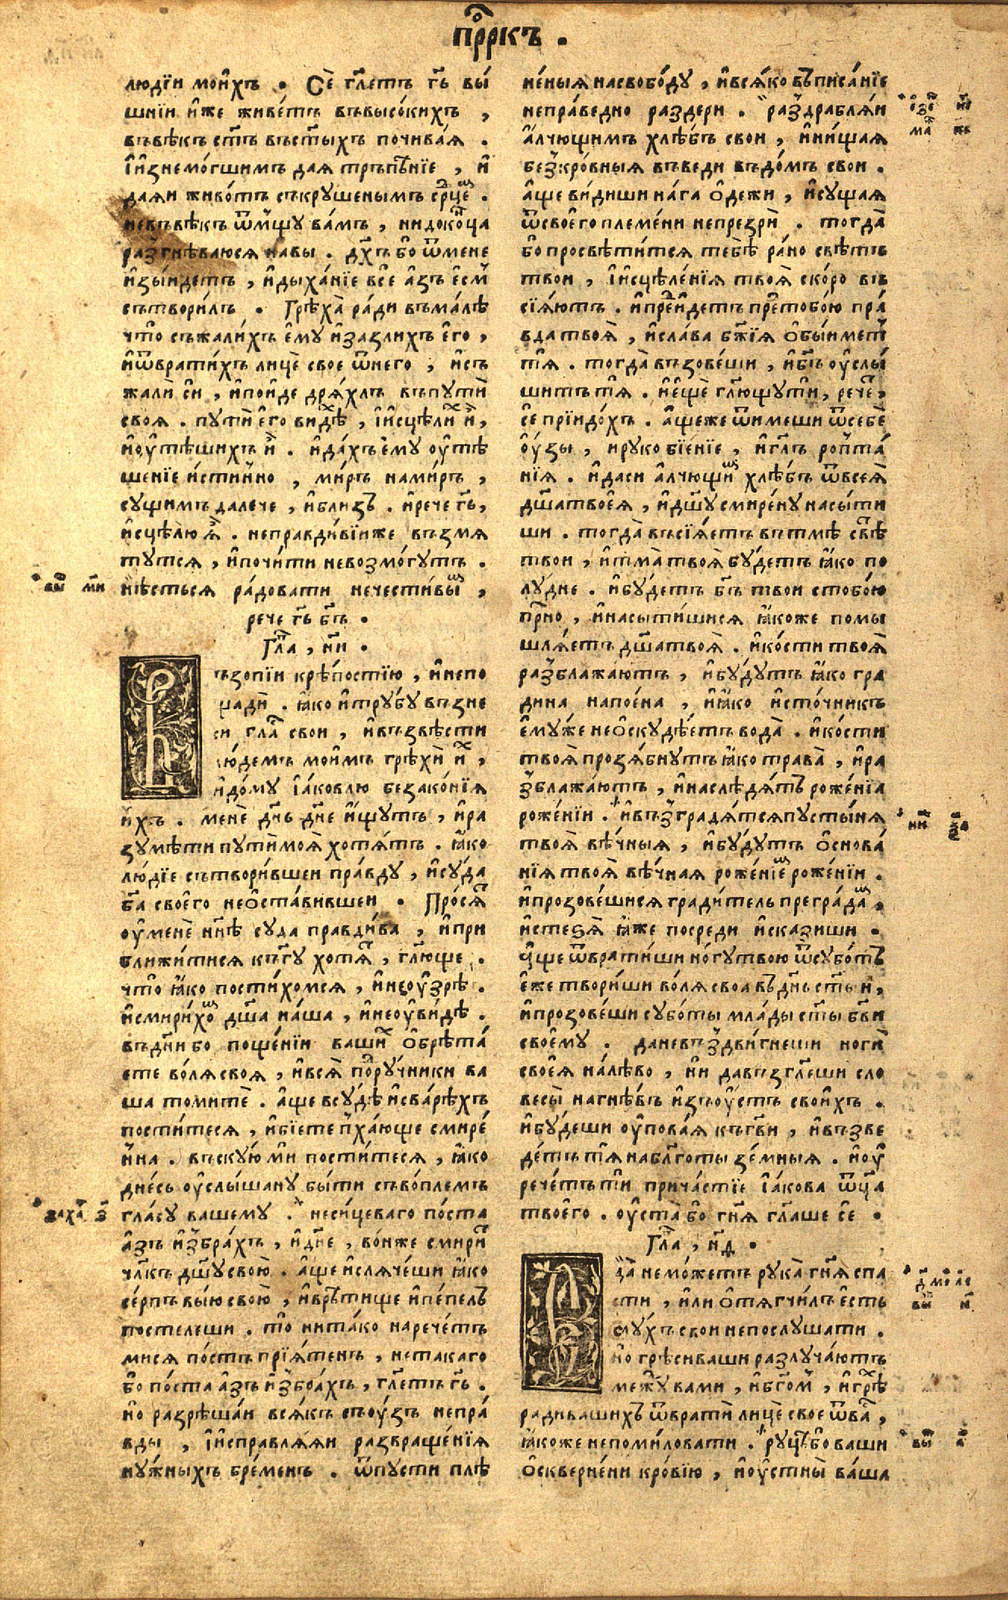 прⷪ҇ркъ .
людїи мои́хъ . Сѐ гл҃етъ гь҃ вы́
шнїи и҆́же живе́тъ въвысо́кихъ ,
въвѣ́къ ст҃ъ въст҃ы́хъ почива́я .
И҆изнемо́гшимъ дая трьпѣ́нїе , и҆
даяи живо́тъ съкруше́нымъ ср҃це .
невъвѣ́къ ѿмщу̀ ва́мъ , нидоконца
разгнѣ́ваюся навы̀ . дх҃ъ бо ѿмене
изы́идетъ , и҆дыха́нїе все а҆́зъ е҆́смь
сътвори́лъ . Грѣ́ха ра́ди въма́лѣ
что съжа́лихъ е҆му и҆зазлихъ е҆го ,
и҆ѿврати́хъ лицѐ свое ѿнего , и҆съ
жали́ си , и҆по́иде дря́хлъ въпути̂
своя̀ . пути̂ е҆го ви́дѣ , и҆исцѣли и҆̀ ,
и҆оу҆тѣ́шихъ и҆̀ . и҆да́хъ е҆му оу҆тѣ
шенїе и҆́стинно , ми́ръ нами́ръ ,
су́щимъ дале́че , и҆бли́зъ . и҆рече гь҃ ,
и҆сцѣлю̀ я҆̀ . неправди́вїиже възмя
ту́тся , и҆почи́ти невозмо́гутъ .
нѣ́сться ра́довати нечести́вым ,
рече гь҃ бг҃ъ .
Гла҃ , н҃и .
Възопїи крѣ́постїю , и҆непо
щади̂ . я҆́ко и҆тру́бу възне
си гла́ свои , и҆възвѣсти
людемъ мои́мъ грѣхи и҆́х ,
и҆до́му І҆а́ковлю безако́нїя
и҆́хъ . менѐ дн҃ь дн҃е и҆́щутъ , и҆ра
зумѣ́ти пути̂ моя̀ хотя́тъ . я҆́ко
лю́дїе сътвори́вшеи пра́вду , и҆суда
бг҃а своего нео҆ста́вившеи . Про́сят
оу҆менѐ нн҃ѣ суда̀ правди́ва , и҆при
бли́житися къбг҃у хотя́т , гл҃юще .
что я҆́ко пости́хомся , и҆неоу҆зрѣ̀ .
и҆смири́хом дш҃а на́ша , и҆неоу҆ви́дѣ .
въдн҃и бо поще́нїи ваших о҆брѣта́
ете во́ля своя̀ , и҆вся̀ пору́чники ва
ша томите̂ . а҆ще всудѣ̀ и҆сва́рѣхъ
пости́теся , и҆бїе́те пха́юще смире́
нна . въску́ю ми пости́теся , я҆́ко
дне́сь оу҆слы́шану бы́ти съво́племъ
гла́су ва́шему . несицева́го по́ста
а҆́зъ и҆збра́хъ , и҆дн҃е , во́ньже смири́т
чл҃къ дш҃у свою̀ . а҆́ще и҆сляче́ши я҆́ко
се́рпъ вы́ю свою , и҆вре́тище и҆пе́пелъ
посте́леши . то̀ нита́ко нарече́тъ
мися по́стъ прїя́тенъ , нетака́го
бо̀ по́ста а҆́зъ и҆збра́хъ , гл҃етъ гь҃ .
но разрѣша́и вся́къ съоу҆зъ непра́
вды , и҆исправля́яи развраще́нїя
ну́жныхъ бре́менъ . ѿпусти плѣ
не́ныя насвобо́ду , и҆вся́ко въписа́нїе
непра́ведно раздери . раздрабля́яи
а҆́лчющимъ хлѣ́бъ свои , и҆ни́щая
безкро́вныя въведи въдо́мъ свои .
а҆́ще ви́диши на́га о҆де́жи , и҆су́щая
ѿсвое́го пле́мени непре́зри̂ . тогда̀
бо просвѣти́тся тебѣ̀ ра́но свѣтъ
твои , и҆исцѣле́нїя твоя̀ ско́ро въ
сїя́ютъ . и҆пре́идетъ претобо́ю пра́
вда твоя̀ , и҆сла́ва бж҃їя о҆бы́иметъ
тя . тогда̀ възове́ши , и҆бг҃ъ оу҆слы́
шитъ тя . и҆е҆ще гл҃ющути , рече ,
се прїидо́хъ . а҆́щеже ѿи́меши ѿсебѐ
оу҆́зы , и҆руко бїе́нїе , и҆гл҃ъ ропта́
нїя . и҆да́си а҆́лчющим хлѣ́бъ ѿвсея̀
дш҃атвоея̀ , и҆дш҃у смире́ну насыти
ши . тогда̀ въсїя́етъ вътмѣ̀ свѣ́т
твои , и҆тма̀ твоя̀ бу́детъ я҆́ко по
лу́дне . и҆бу́детъ бг҃ъ твои стобо́ю
при́сно , и҆насыти́шися я҆́коже помы
шля́етъ дш҃атвоя̀ . и҆ко́сти твоя̀
разблажа́ютъ , и҆бу́дутъ я҆́ко гра
дина напое́на , и҆я҆́ко и҆сто́чникъ
е҆му́же нео҆скудѣ́етъ вода̀ . и҆ко́сти
твоя̀ прозя́бнутъ я҆́ко трава̀ , и҆ра
зблажа́ютъ , и҆наслѣдя́тъ роже́нїа
роже́нїи . и҆възградя́тсяпусты́ня
твоя̀ вѣ́чныя , и҆бу́дутъ о҆снова́
нїя твоя̀ вѣ́чная роже́нїем роже́нїи .
и҆прозове́шися гради́тель прегра́дам ,
и҆стезя̀ я҆́же посреди и҆ска́зиши .
а҆́ще ѿврати́ши но́гу твою ѿсубо́тъ
е҆́же твори́ши воля̀ своа въдн҃ь ст҃ыи ,
и҆прозове́ши субо́ты мла́ды ст҃ы бг҃ви
своему . даневъздви́гнеши ноги̂
своея̀ нале́во , ни давъзгл҃еши сло
весы̀ нагнѣ́въ и҆зъоу҆стъ свои́хъ .
и҆бу́деши оу҆пова́я къгв҃и , и҆възве
де́тъ тя набл҃готы зе́мныя . и҆оу҆
рече́тъ ти прича́стїе І҆а́кова ѿц҃а
твоего̀ . оу҆ста бо̀ гн҃я гл҃аше се .
Гла҃ , н҃ѳ .
Еда неможетъ рука̀ гн҃я спа
сти , и҆ли о҆тягчи́лъ е҆сть
слухъ свои непослушати .
но грѣси ваши разлуча́ютъ
межу вами , и҆бг҃ом , и҆грѣ
радива́шихъ ѿврати̂ лицѐ свое ѿвас ,
я҆́коже непоми́ловати . ру́цѣ бо ваши
о҆скверне́ни кро́вїю , и҆оу҆стны̀ ва́ша